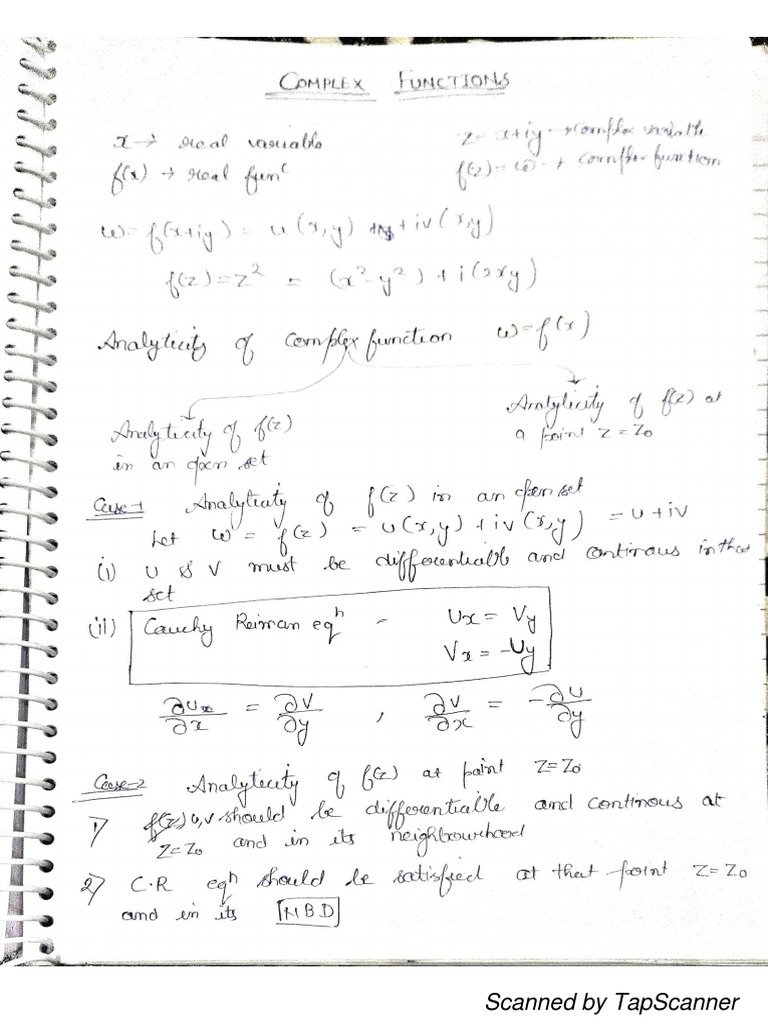 COMPLEX FUNCTIONS
x → real variable
z = x+iy → complex variable
f(x) → real func
f(z) = ω → complex function
ω = f(x+iy) = u(x,y) + iv(x,y)
f(z) = z² = (x²-y²) + i(2xy)
Analyticity of complex function ω = f(x)
Analyticity of f(z)
in an open set
Analyticity of f(z) at
a point z = z₀
Case-1 Analyticity of f(z) in an open set
Let ω = f(z) = u(x,y) + iv(x,y) = u + iv
(i) U & V must be differentiable and continous in that
set
(ii) Cauchy Reiman eqⁿ - Ux = Vy
Vx = -Uy
∂u/∂x = ∂v/∂y , ∂v/∂x = -∂u/∂y
Case-2 Analyticity of f(z) at point z = z₀
1) f(z) u,v should be differentiable and continous at
z = z₀ and in its neighbourhood
2) C.R eqⁿ should be satisfied at that point z = z₀
and in its NBD
Scanned by TapScanner